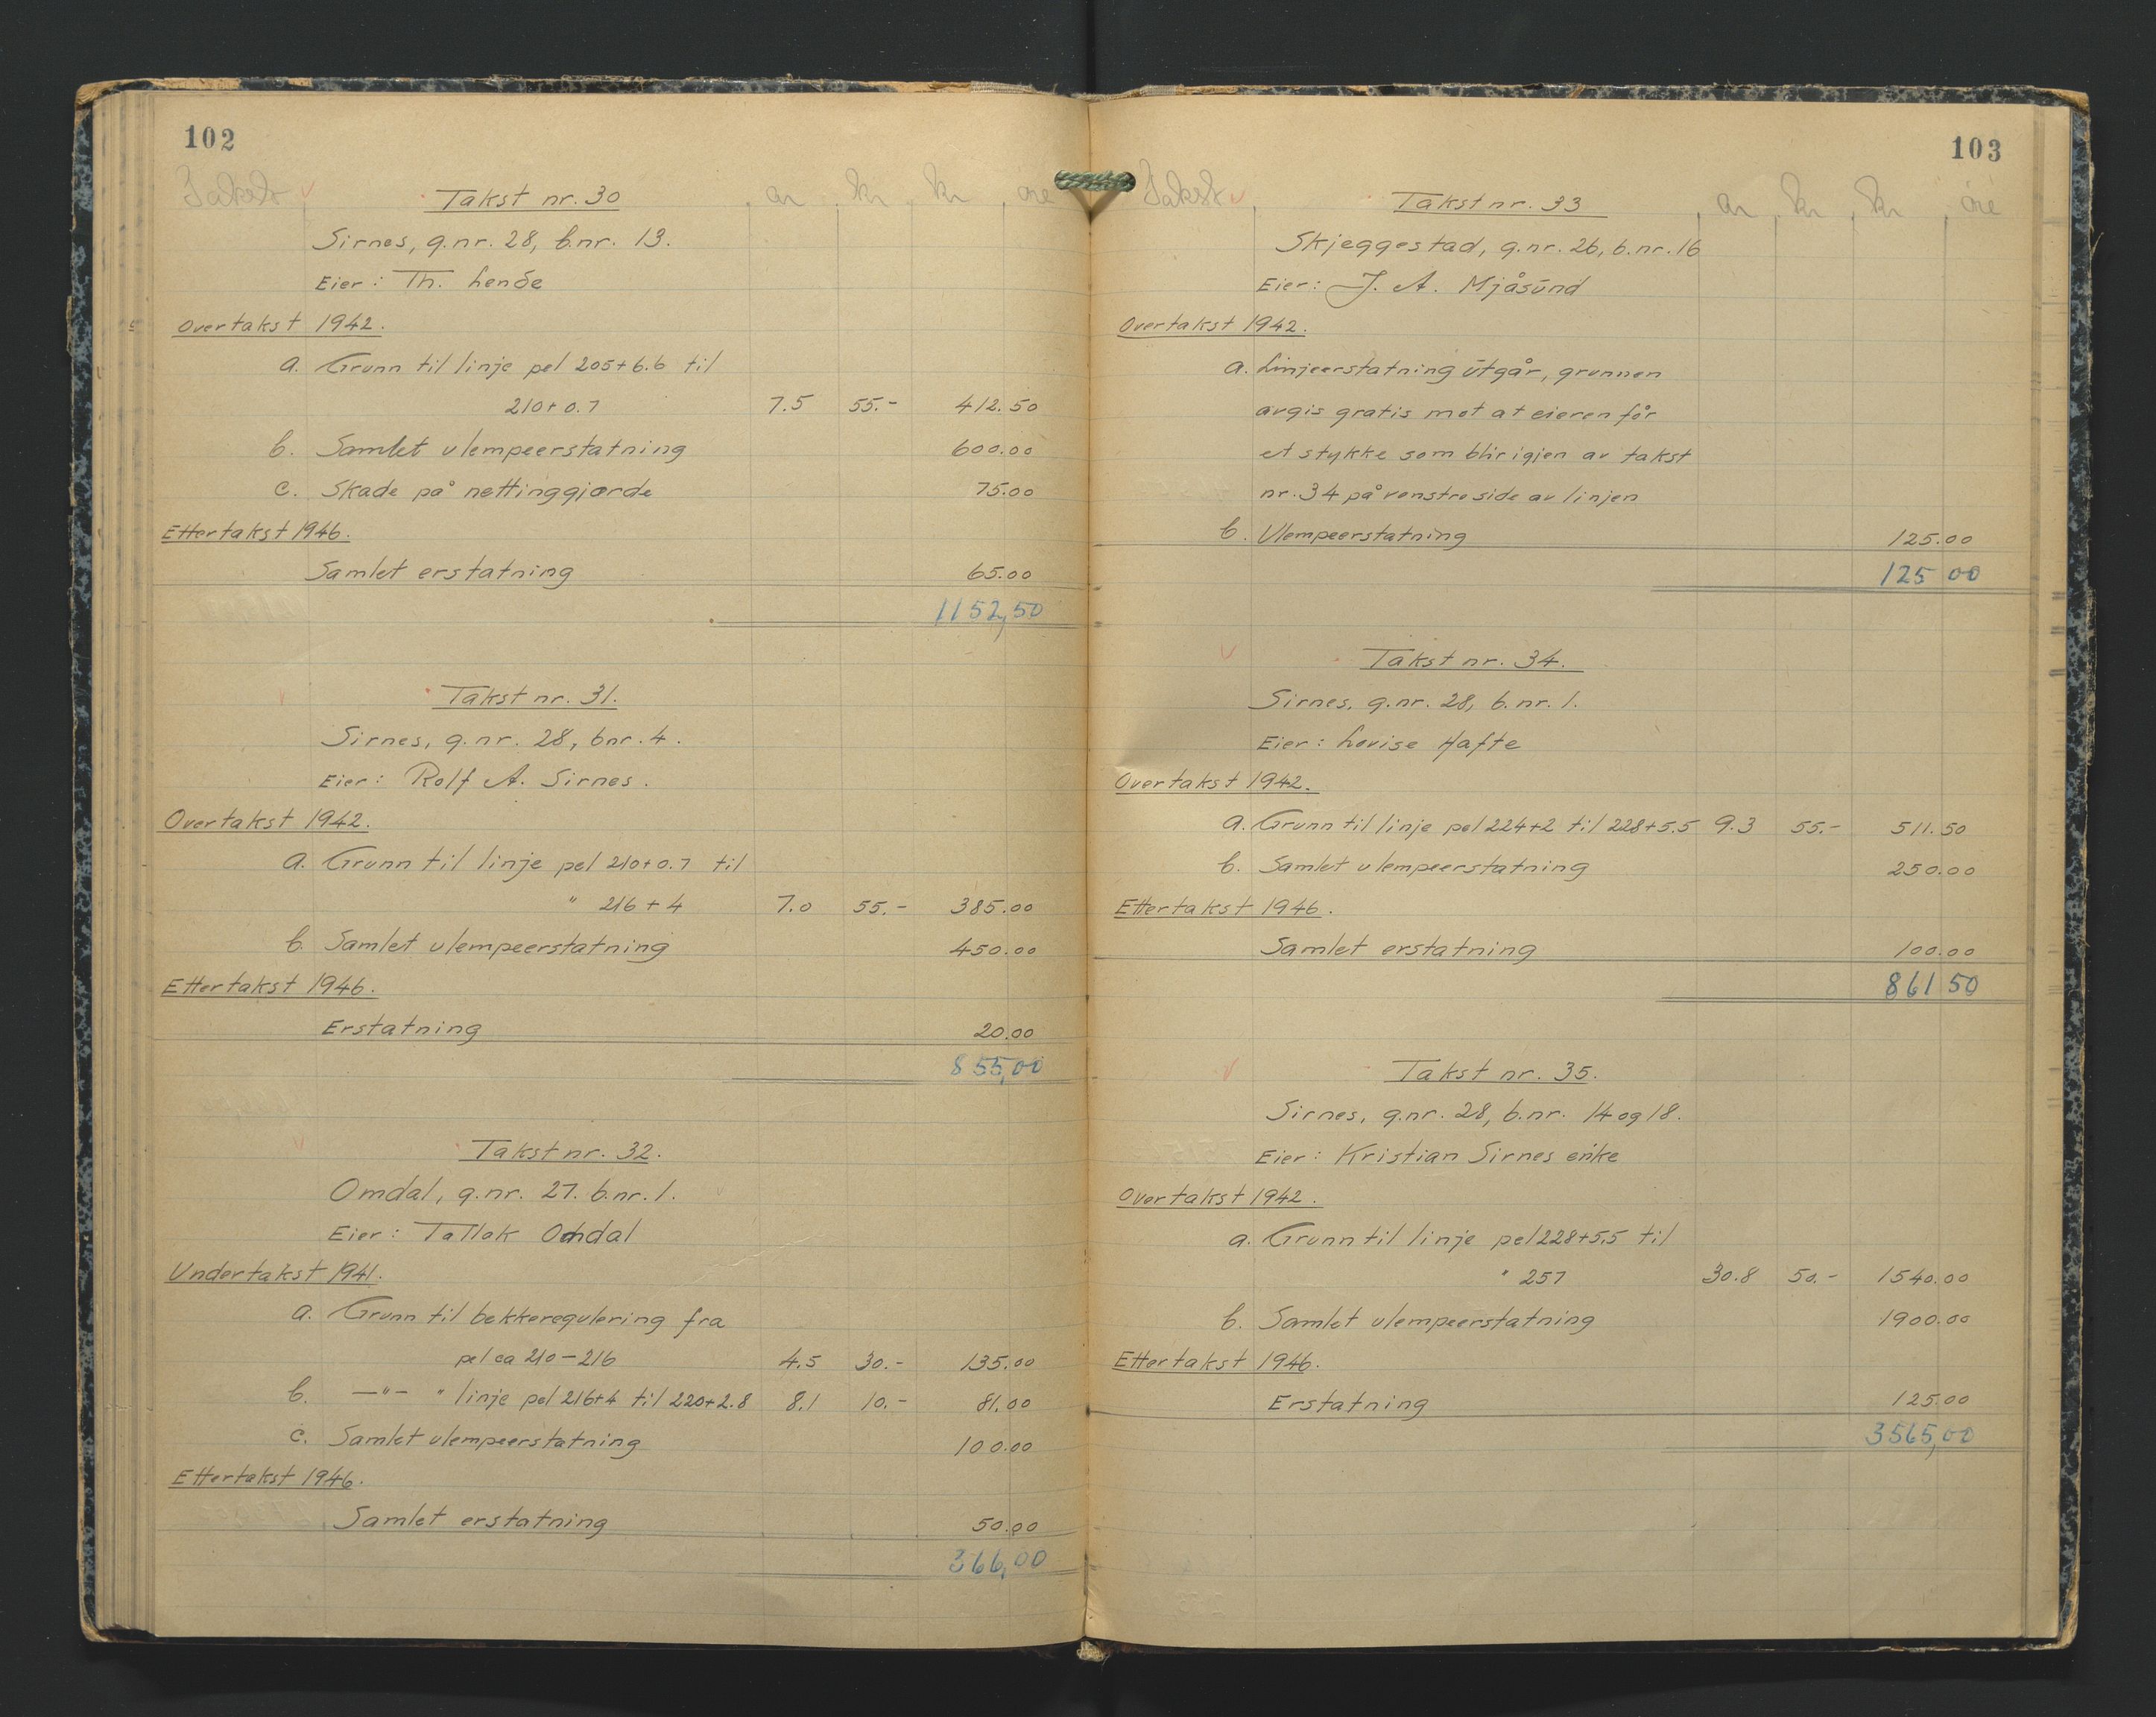 102
Takst ar kr kr øre
Takst nr. 30
Sirnes, g.nr. 28, b.nr. 13.
Eier: Th. Lende
Overtakst 1942.
a. Grunn til linje pel 205+6.6 til
210+0.7 7.5 55.- 412.50
b. Samlet ulempeerstatning 600.00
c. Skade på nettinggjærde 75.00
Ettertakst 1946.
Samlet erstatning 65.00
1152,50
Takst nr. 31.
Sirnes, g.nr. 28, bnr. 4.
Eier: Rolf A. Sirnes.
Overtakst 1942.
a. Grunn til linje pel 210+0.7 til
" 216+4 7.0 55.- 385.00
b. Samlet ulempeerstatning 450.00
Ettertakst 1946.
Erstatning 20.00
855,00
Takst nr. 32.
Omdal, g.nr. 27. b.nr. 1.
Eier: Tallak Omdal
Undertakst 1941.
a. Grunn til bekkeregulering fra
pel ca 210-216 4.5 30.- 135.00
b. —"— " linje pel 216+4 til 220+2.8 8.1 10.- 81.00
c. Samlet ulempeerstatning 100.00
Ettertakst 1946.
Samlet erstatning 50.00
366,00
103
Takst ar kr kr øre
Takst nr. 33
Skjeggestad, g.nr. 26, b.nr. 16
Eier: J. A. Mjåsund
Overtakst 1942.
a. Linjeerstatning utgår, grunnen
avgis gratis mot at eieren får
et stykke som blir igjen av takst
nr. 34 på venstre side av linjen
b. Ulempeerstatning 125.00
125 00
Takst nr. 34.
Sirnes, g.nr. 28, b.nr. 1.
Eier: Lovise Hafte
Overtakst 1942.
a. Grunn til linje pel 224+2 til 228+5.5 9.3 55.- 511.50
b. Samlet ulempeerstatning 250.00
Ettertakst 1946.
Samlet erstatning 100.00
861 50
Takst nr. 35.
Sirnes, g.nr. 28, b.nr. 14 og 18.
Eier: Kristian Sirnes enke
Overtakst 1942.
a. Grunn til linje pel 228+5.5 til
" 257 30.8 50.- 1540.00
b. Samlet ulempeerstatning 1900.00
Ettertakst 1946.
Erstatning 125.00
3565,00